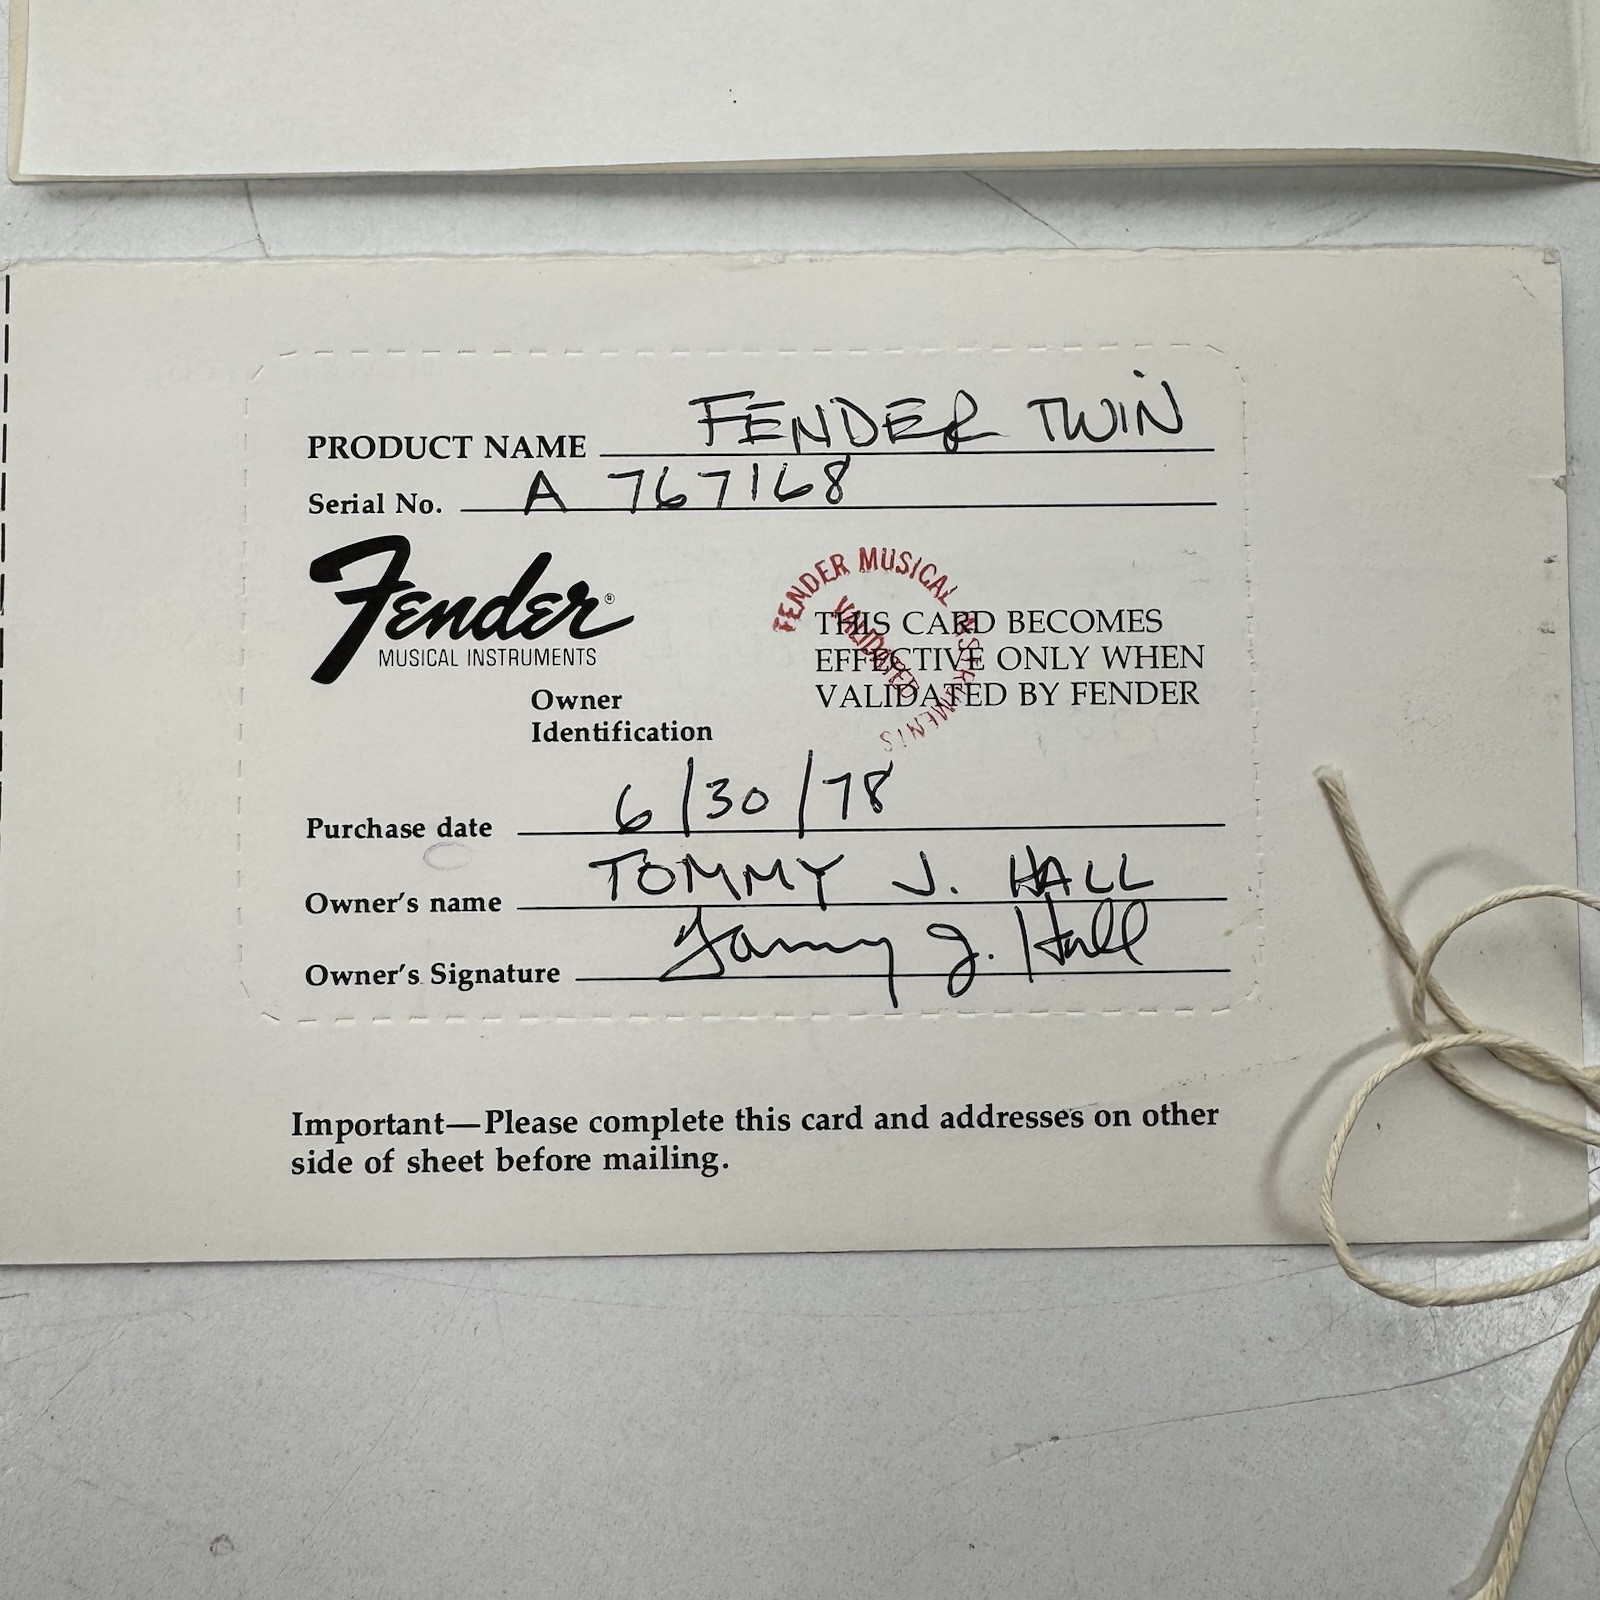 PRODUCT NAME FENDER TWIN
Serial No. A 767168
Fender®
MUSICAL INSTRUMENTS
Owner
Identification
FENDER MUSICAL INSTRUMENTS
VALIDATED
THIS CARD BECOMES
EFFECTIVE ONLY WHEN
VALIDATED BY FENDER
Purchase date 6/30/78
Owner's name TOMMY J. HALL
Owner's Signature Tommy J. Hall
Important—Please complete this card and addresses on other
side of sheet before mailing.